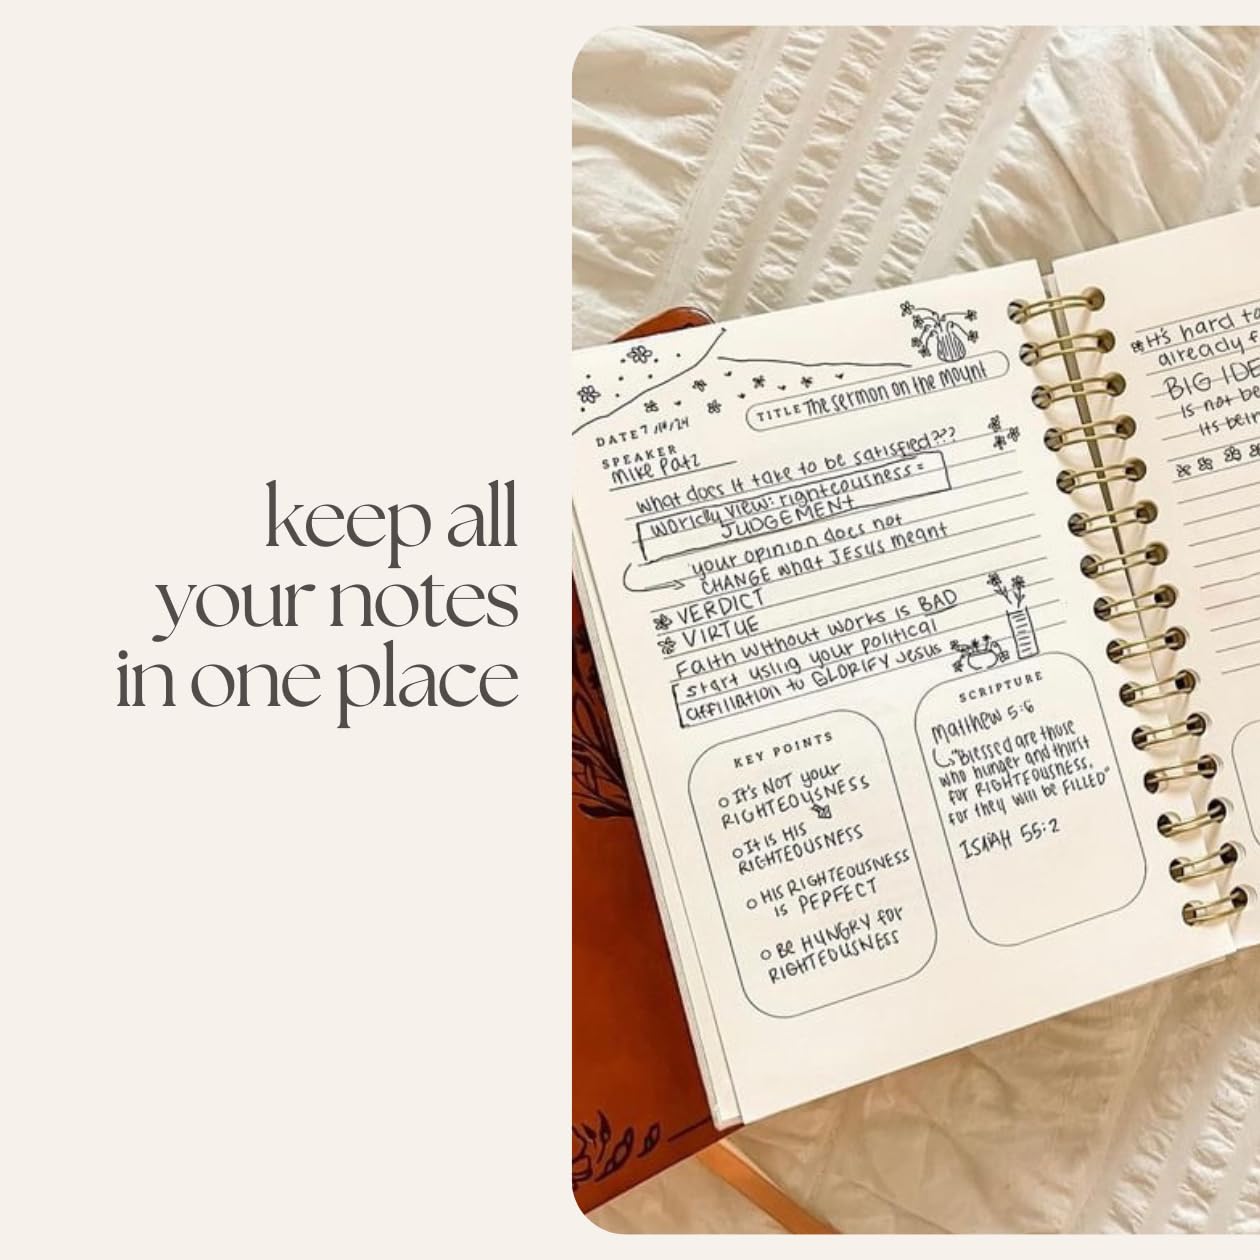 keep all
your notes
in one place
TITLE The sermon on the mount
DATE 7/14/24
SPEAKER
Mike Patz
what does it take to be satisfied???
worldly view: righteousness =
JUDGEMENT
your opinion does not
CHANGE what JESUS meant
VERDICT
VIRTUE
Faith without works is BAD
start using your political
affiliation to GLORIFY Jesus
KEY POINTS
It's NOT your
RIGHTEOUSNESS
It is HIS
RIGHTEOUSNESS
HIS RIGHTEOUSNESS
is PERFECT
Be HUNGRY for
RIGHTEOUSNESS
SCRIPTURE
Matthew 5:6
"Blessed are those
who hunger and thirst
for RIGHTEOUSNESS,
for they will be FILLED"
ISAIAH 55:2
It's hard to
already
BIG
is not
its